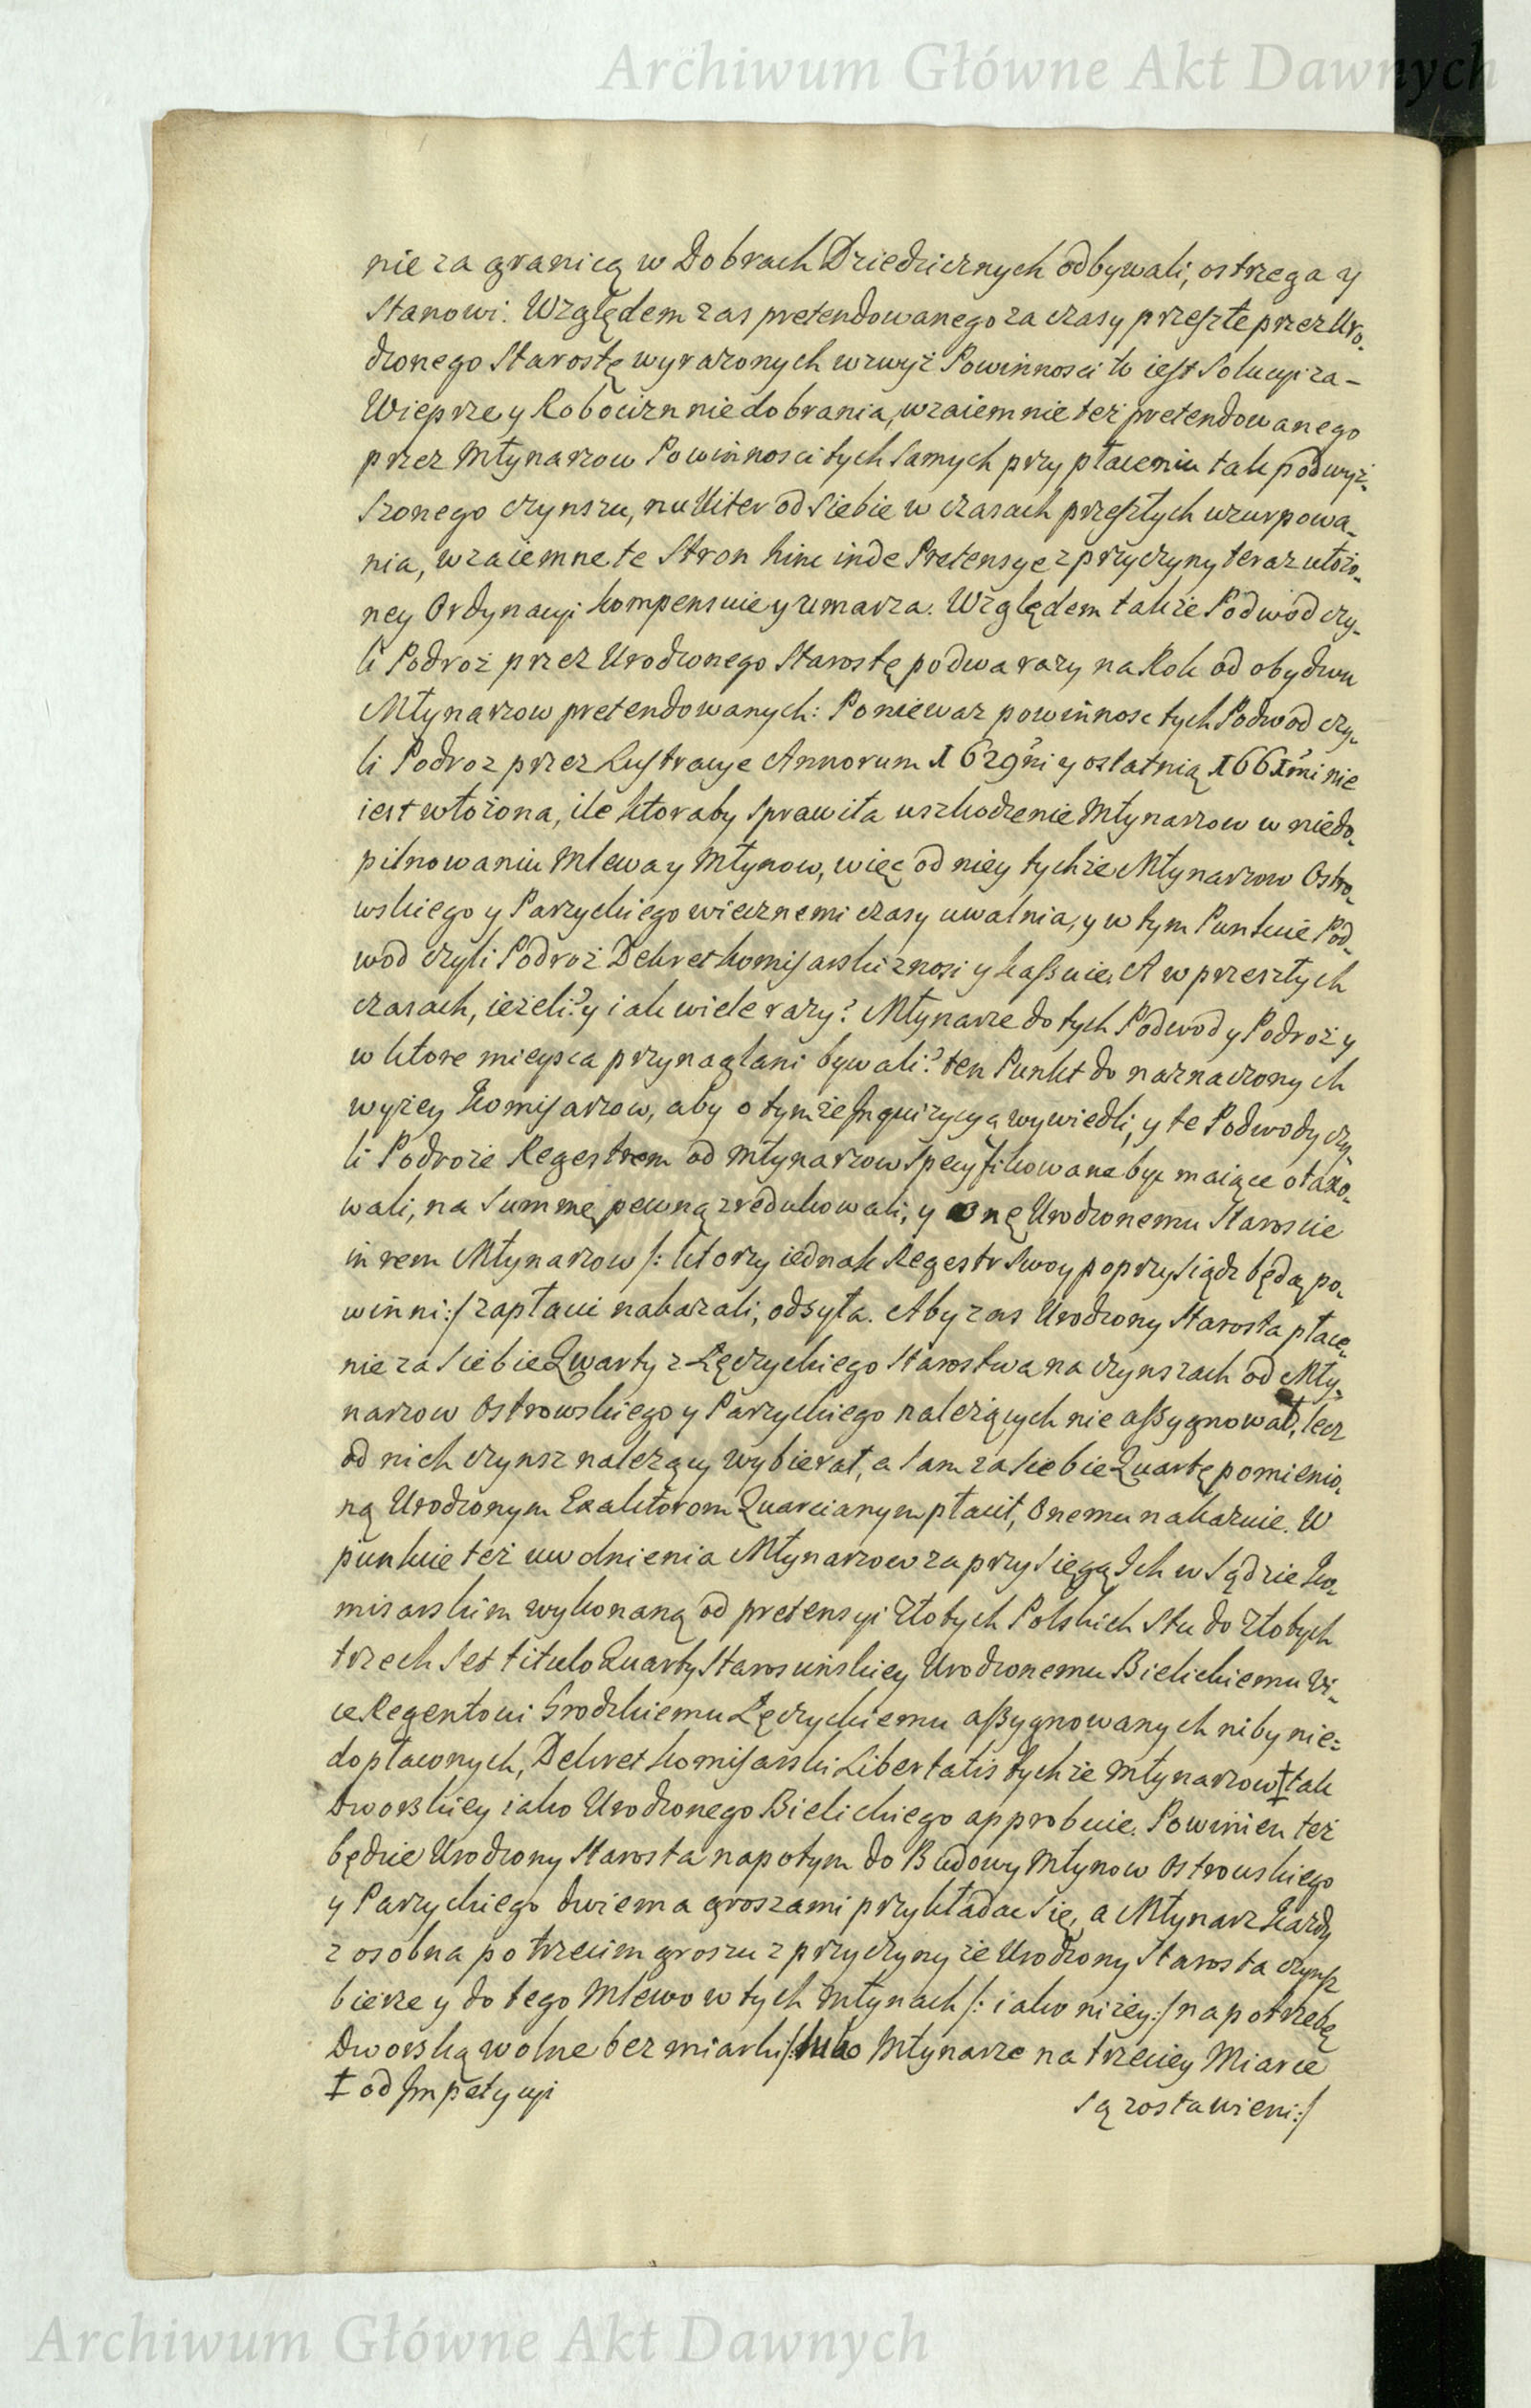 Archiwum Główne Akt Dawnych
nie za granicą w Dobrach Dziedzicznych odbywali, ostrzega y
Stanowi. Względem zas pretendowanego za czasy przeszłe przez Uro„
dzonego Starostę wyrazonych wzwyż Powinnosci to iest Solucyi za –
Wieprze y Robocizn niedobrania, wzaiemnie też pretendowanego
przez Młynarzow Powinnosci tych samych przy płaceniu tak podwyż„
szonego czynszu, nulliter od siebie w czasach przeszłych uzurpowa„
nia, wzaiemne te Stron hinc inde Pretensye z przyczyny teraz ułożo„
ney Ordynacyi kompensuie y umarza. Względem także Podwod czy„
li Podroż przez Urodzonego Starostę po dwa razy na Rok od obydwu
Młynarzow pretendowanych: Poniewaz powinnosc tych Podwod czy„
li Podroz przez Lustracye Annorum 1629ni y ostatnią 1661mi nie
iest włożona, ile ktoraby sprawiła uszkodzenie Młynarzow w niedo„
pilnowaniu Mlewa y Młynow, więc od niey tychże Młynarzow Ostro„
wskiego y Parzyckiego wiecznemi czasy uwalnia, y w tym Punkcie Pod„
wod czyli Podroż Dekret komisarski znosi y kassuie. A w przeszłych
czasach, ieżeli? y iak wiele razy? Młynarze do tych Podwod y Podroż y
w ktore mieysca przynaglani bywali? ten Punkt do naznaczonych
wyżey Komisarzow, aby o tymże Inquizycyą wywiedli, y te Podwody czy„
li Podroże Regestrem od Młynarzow specyfikowane byc maiące otaxo„
wali, na Summę pewną zredukowali, y onę Urodzonemu Staroscie
in rem Młynarzow /: ktorzy iednak Regestr swoy poprzysiądz będą po„
winni :/ zapłacic nakazali, odsyła. Aby zas Urodzony Starosta płace„
nie za siebie Quarty z Łęczyckiego Starostwa na czynszach od Mły„
narzow Ostrowskiego y Parzyckiego należących nie assygnował, lecz
od nich czynsz należący wybierał, a sam za siebie Quartę pomienio„
ną Urodzonym Exaktorom Quarcianym płacił, Onemu nakazuie. W
punkcie też uwolnienia Młynarzow za przysięgą Ich w Sądzie Ko„
misarskim wykonaną od pretensyi Złotych Polskich Stu do złotych
trzech set titulo Quarty Starościńskiey Urodzonemu Bielickiemu Vi„
ce Regentowi Grodzkiemu Łęczyckiemu assygnowanych niby nie=
dopłaconych, Dekret komisarski Libertatis tychże Młynarzow ‡ tak
Dworskiey iako Urodzonego Bielickiego approbuie. Powinien też
będzie Urodzony Starosta napotym do Budowy Młynow Ostrowskiego
y Parzyckiego dwiema groszami przykładac się, a Młynarz każdy
z osobna po trzecim groszu z przyczyny że Urodzony Starosta czynsz
bierze y do tego Mlewo w tych Młynach /: iako niżey :/ na potrzebę
Dworską wolne bez miarki /: lubo Młynarze na trzeciey Miarce
‡ od Impetycyi
są zostawieni :/
Archiwum Główne Akt Dawnych